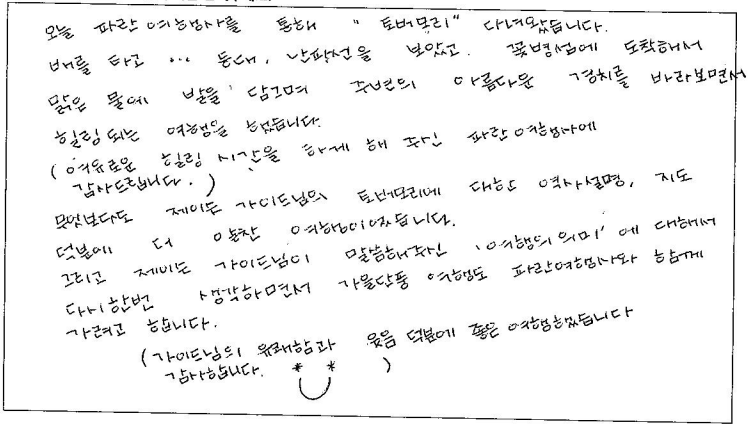 오늘 파란 여행사를 통해 " 토버모리" 다녀왔습니다.
배를 타고 ... 등대, 난파선을 보았고. 꽃병섬에 도착해서
맑은 물에 발을 담그며 주변의 아름다운 경치를 바라보면서
힐링 되는 여행을 했습니다.
(여유로운 힐링 시간을 하게 해 주신 파란여행사에
감사드립니다. )
무엇보다도 제이든 가이드님의 토버모리에 대한 역사설명, 지도
덕분에 더 알찬 여행이었습니다.
그리고 제이든 가이드님이 말씀해주신 '여행의 의미' 에 대해서
다시한번 생각하면서 가을단풍 여행도 파란여행사와 함께
가려고 합니다.
(가이드님의 유쾌함과 웃음 덕분에 좋은 여행했습니다
감사합니다. )